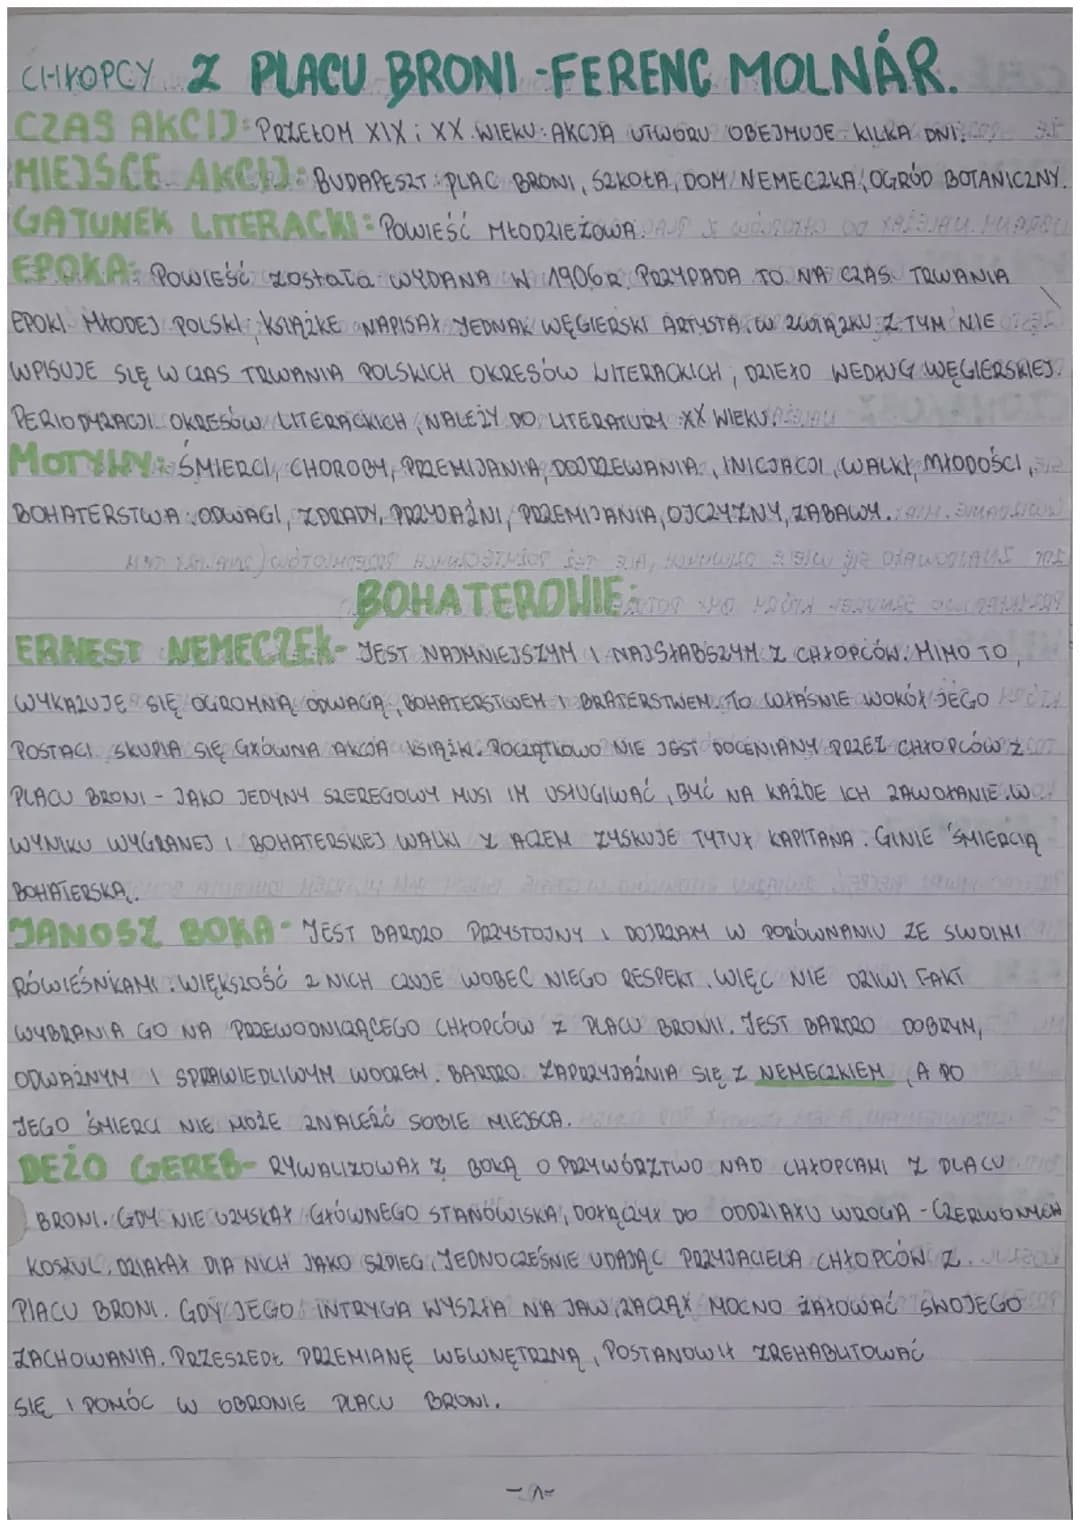 CHŁOPCY Z PLACU BRONI - FERENC MOLNÁR.
CZAS AKCIJ: PRZEŁOM XIX i XX WIEKU: AKCJA UTWORU OBEJMUJE KILKA DNI.
MIEJSCE AKCIJ: BUDAPESZT: PLAC BRONI, SZKOŁA, DOM NEMECZKA, OGRÓD BOTANICZNY.
GATUNEK LITERACKI: POWIEŚĆ MŁODZIEŻOWA.
EPOKA: POWIEŚĆ ZOSTAŁA WYDANA W 1906R. PRZYPADA TO NA CZAS TRWANIA
EPOKI MŁODEJ POLSKI; KSIĄŻKE NAPISAŁ JEDNAK WĘGIERSKI ARTYSTA. W ZWIĄZKU Z TYM NIE
WPISUJE SIĘ W CZAS TRWANIA POLSKICH OKRESÓW LITERACKICH, DZIEŁO WEDŁUG WĘGIERSKIEJ
PERIODYZACJI OKRESÓW LITERACKICH, NALEŻY DO LITERATURY XX WIEKU.
MOTYWY: ŚMIERCI, CHOROBY, PRZEMIJANIA, DOJRZEWANIA, INICJACJI, WALKI, MŁODOŚCI,
BOHATERSTWA: ODWAGI, ZDRADY, PRZYJAŹNI, PRZEMIJANIA, OJCZYZNY, ZABAWY.
BOHATEROWIE:
ERNEST NEMECZEK - JEST NAJMNIEJSZYM I NAJSŁABSZYM Z CHŁOPCÓW. MIMO TO,
WYKAZUJE SIĘ OGROMNĄ ODWAGĄ, BOHATERSTWEM I BRATERSTWEM. TO WŁAŚNIE WOKÓŁ JEGO
POSTACI SKUPIA SIĘ GŁÓWNA AKCJA KSIĄŻKI. POCZĄTKOWO NIE JEST DOCENIANY PRZEZ CHŁOPCÓW Z
PLACU BRONI - JAKO JEDYNY SZEREGOWY MUSI IM USŁUGIWAĆ, BYĆ NA KAŻDE ICH ZAWOŁANIE. W
WYNIKU WYGRANEJ I BOHATERSKIEJ WALKI Z ACZEM ZYSKUJE TYTUŁ KAPITANA. GINIE ŚMIERCIĄ
BOHATERSKĄ.
JANOSZ BOKA - JEST BARDZO PRZYSTOJNY I DOJRZAŁY W PORÓWNANIU ZE SWOIMI
RÓWIEŚNIKAMI. WIĘKSZOŚĆ Z NICH CZUJE WOBEC NIEGO RESPEKT, WIĘC NIE DZIWI FAKT
WYBRANIA GO NA PRZEWODNICZĄCEGO CHŁOPCÓW Z PLACU BRONII. JEST BARDZO DOBRYM,
ODWAŻNYM I SPRAWIEDLIWYM WODZEM. BARDZO ZAPRZYJAŹNIA SIĘ Z NEMECZKIEM, A PO
JEGO ŚMIERCI NIE MOŻE ZNALEŹĆ SOBIE MIEJSCA.
DEŻO GEREB - RYWALIZOWAŁ Z BOKĄ O PRZYWÓRZTWO NAD CHŁOPCAMI Z PLACU
BRONI. GDY NIE UZYSKAŁ GŁÓWNEGO STANOWISKA, DOŁĄCZYŁ DO ODDZIAŁU WROGA - CZERWONYCH
KOSZUL. DZIAŁAŁ DLA NICH JAKO SZPIEG, JEDNOCZEŚNIE UDAJĄC PRZYJACIELA CHŁOPCÓW Z
PLACU BRONI. GDY JEGO INTRYGA WYSZŁA NA JAW, ZACZĄŁ MOCNO ŻAŁOWAĆ SWOJEGO
ZACHOWANIA. PRZESZEDŁ PRZEMIANĘ WEWNĘTRZNĄ, POSTANOWIŁ ZREHABILITOWAĆ
SIĘ I POMÓC W OBRONIE PLACU BRONI.
-1-